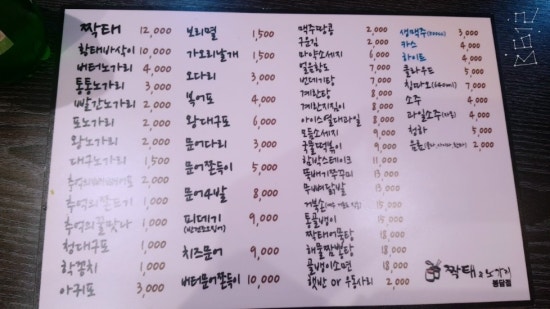 짝태 12,000
황태바삭이 10,000
버터노가리 4,000
통통노가리 3,000
빨간노가리 2,000
포노가리 2,000
왕노가리 2,000
대구노가리 1,500
2,000
추억의쫀드기 1,000
추억의꿀맛나 1,000
청대구포 1,000
학꽁치 1,000
아귀포 3,000
보리멸 1,500
가오리날개 1,500
오다리 3,000
북어포 4,000
왕대구포 6,000
문어다리 3,000
문어쫀득이 5,000
문어4발 8,000
피데기 9,000
(반건조오징어)
치즈문어 9,000
버터문어쫀득이 10,000
맥주땅콩 2,000
구운김 2,000
마약소세지 6,000
얼음황도 7,000
번데기탕 7,000
계란탕 8,000
계란지짐이 8,000
아이스열대과일 8,000
모듬소세지 9,000
국물떡볶이 9,000
함박스테이크 11,000
뚝배기쭈꾸미 13,000
뚝빼닭발 13,000
15,000
통골뱅이 15,000
짝태어묵탕 18,000
해물짬뽕탕 18,000
골뱅이소면 18,000
햇반 or 우동사리 2,000
생맥주 3,000
카스 4,000
하이트 4,000
클라우드 5,000
칭따오(640ml) 7,000
소주 4,000
과일소주 4,000
청하 5,000
음료 2,000
짝태&노가리
봉담점